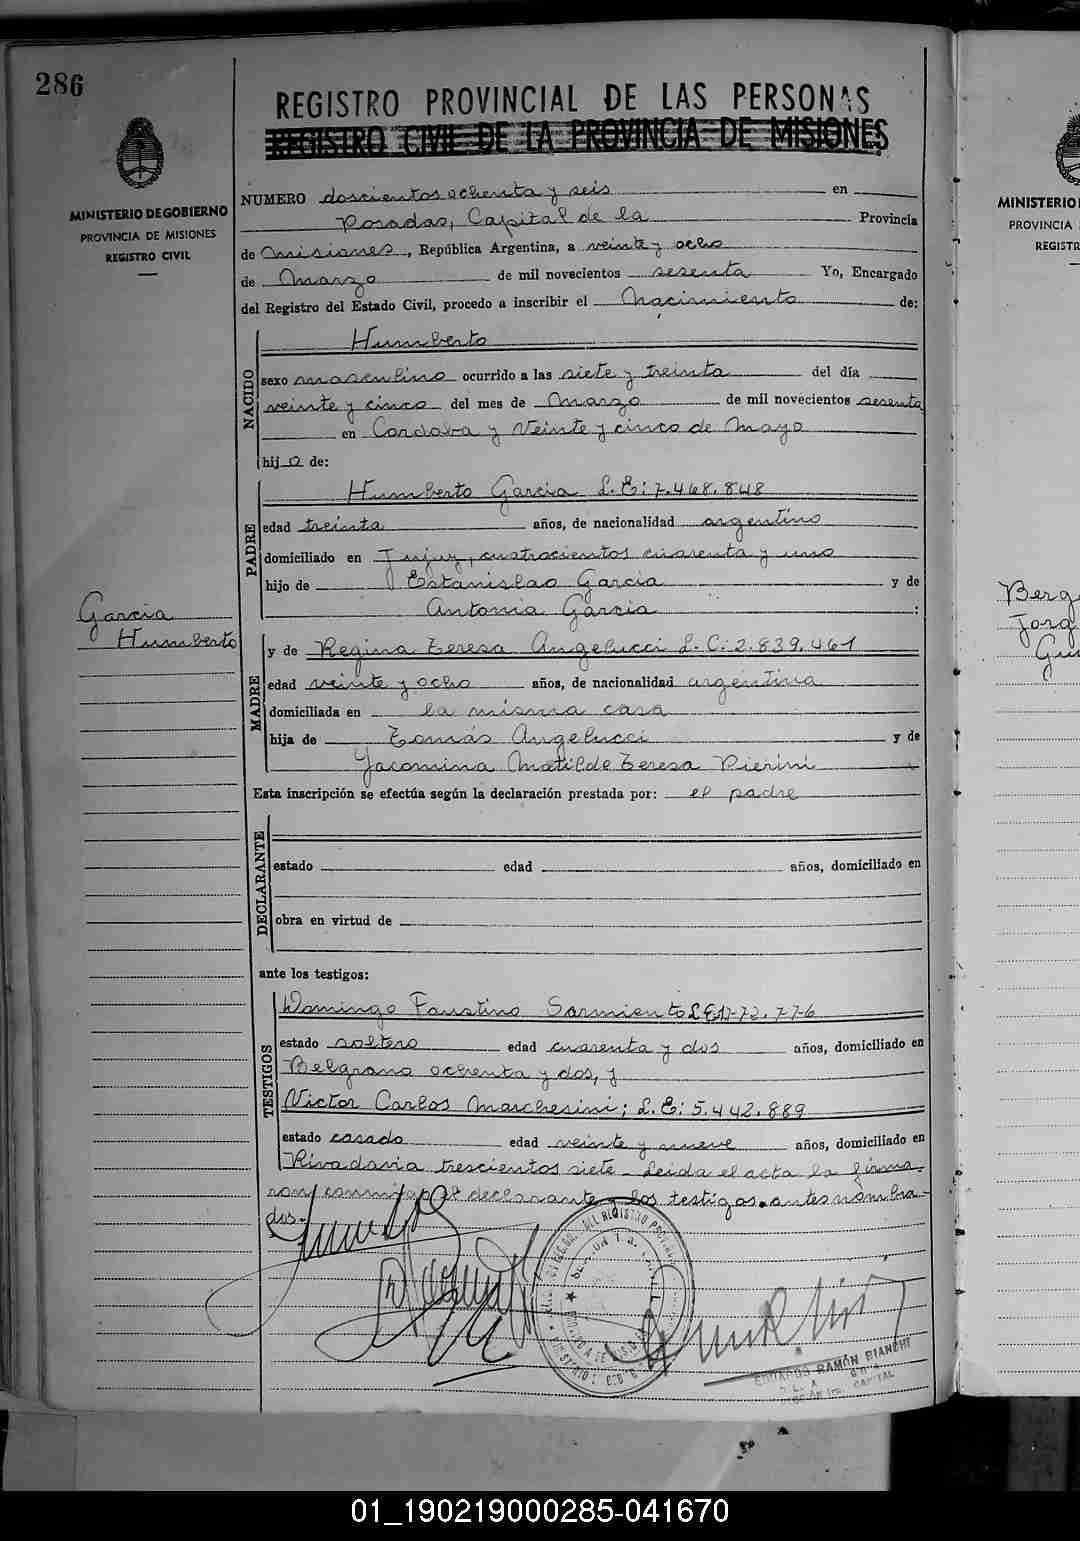 286
REGISTRO PROVINCIAL DE LAS PERSONAS
REGISTRO CIVIL DE LA PROVINCIA DE MISIONES
MINISTERIO DE GOBIERNO
PROVINCIA DE MISIONES
REGISTRO CIVIL
NUMERO doscientos ochenta y seis en
Posadas, Capital de la Provincia
de Misiones, República Argentina, a veinte y ocho
de Marzo de mil novecientos sesenta Yo, Encargado
del Registro del Estado Civil, procedo a inscribir el Nacimiento de:
NACIDO
Humberto
sexo masculino ocurrido a las siete y treinta del día
veinte y cinco del mes de Marzo de mil novecientos sesenta
en Cordoba y Veinte y cinco de Mayo
hijo de:
PADRE
Humberto Garcia L.E: 7.468.848
edad treinta años, de nacionalidad argentino
domiciliado en Jujuy, cuatrocientos cuarenta y uno
hijo de Estanislao Garcia y de
Antonia Garcia :
Garcia
Humberto
MADRE
y de Regina Teresa Angelucci L.C: 2.839.461
edad veinte y ocho años, de nacionalidad argentina
domiciliada en la misma casa
hija de Tomás Angelucci y de
Yacomina Matilde Teresa Pierini
Esta inscripción se efectúa según la declaración prestada por: el padre
DECLARANTE
estado edad años, domiciliado en
obra en virtud de
ante los testigos:
TESTIGOS
Domingo Faustino Sarmiento
estado soltero edad cuarenta y dos años, domiciliado en
Belgrano ochenta y dos, y
Victor Carlos Marchesini; L.E: 5.442.889
estado casado edad veinte y nueve años, domiciliado en
Rivadavia trescientos siete - Leida el acta la firma-
ron conmigo el declarante y los testigos antes nombra-
dos.-
EDUARDO RAMÓN BIANCHI
CAPITAL
MINISTERIO
PROVINCIA
REGISTR
Berg
Jorg
Gui
01_190219000285-041670